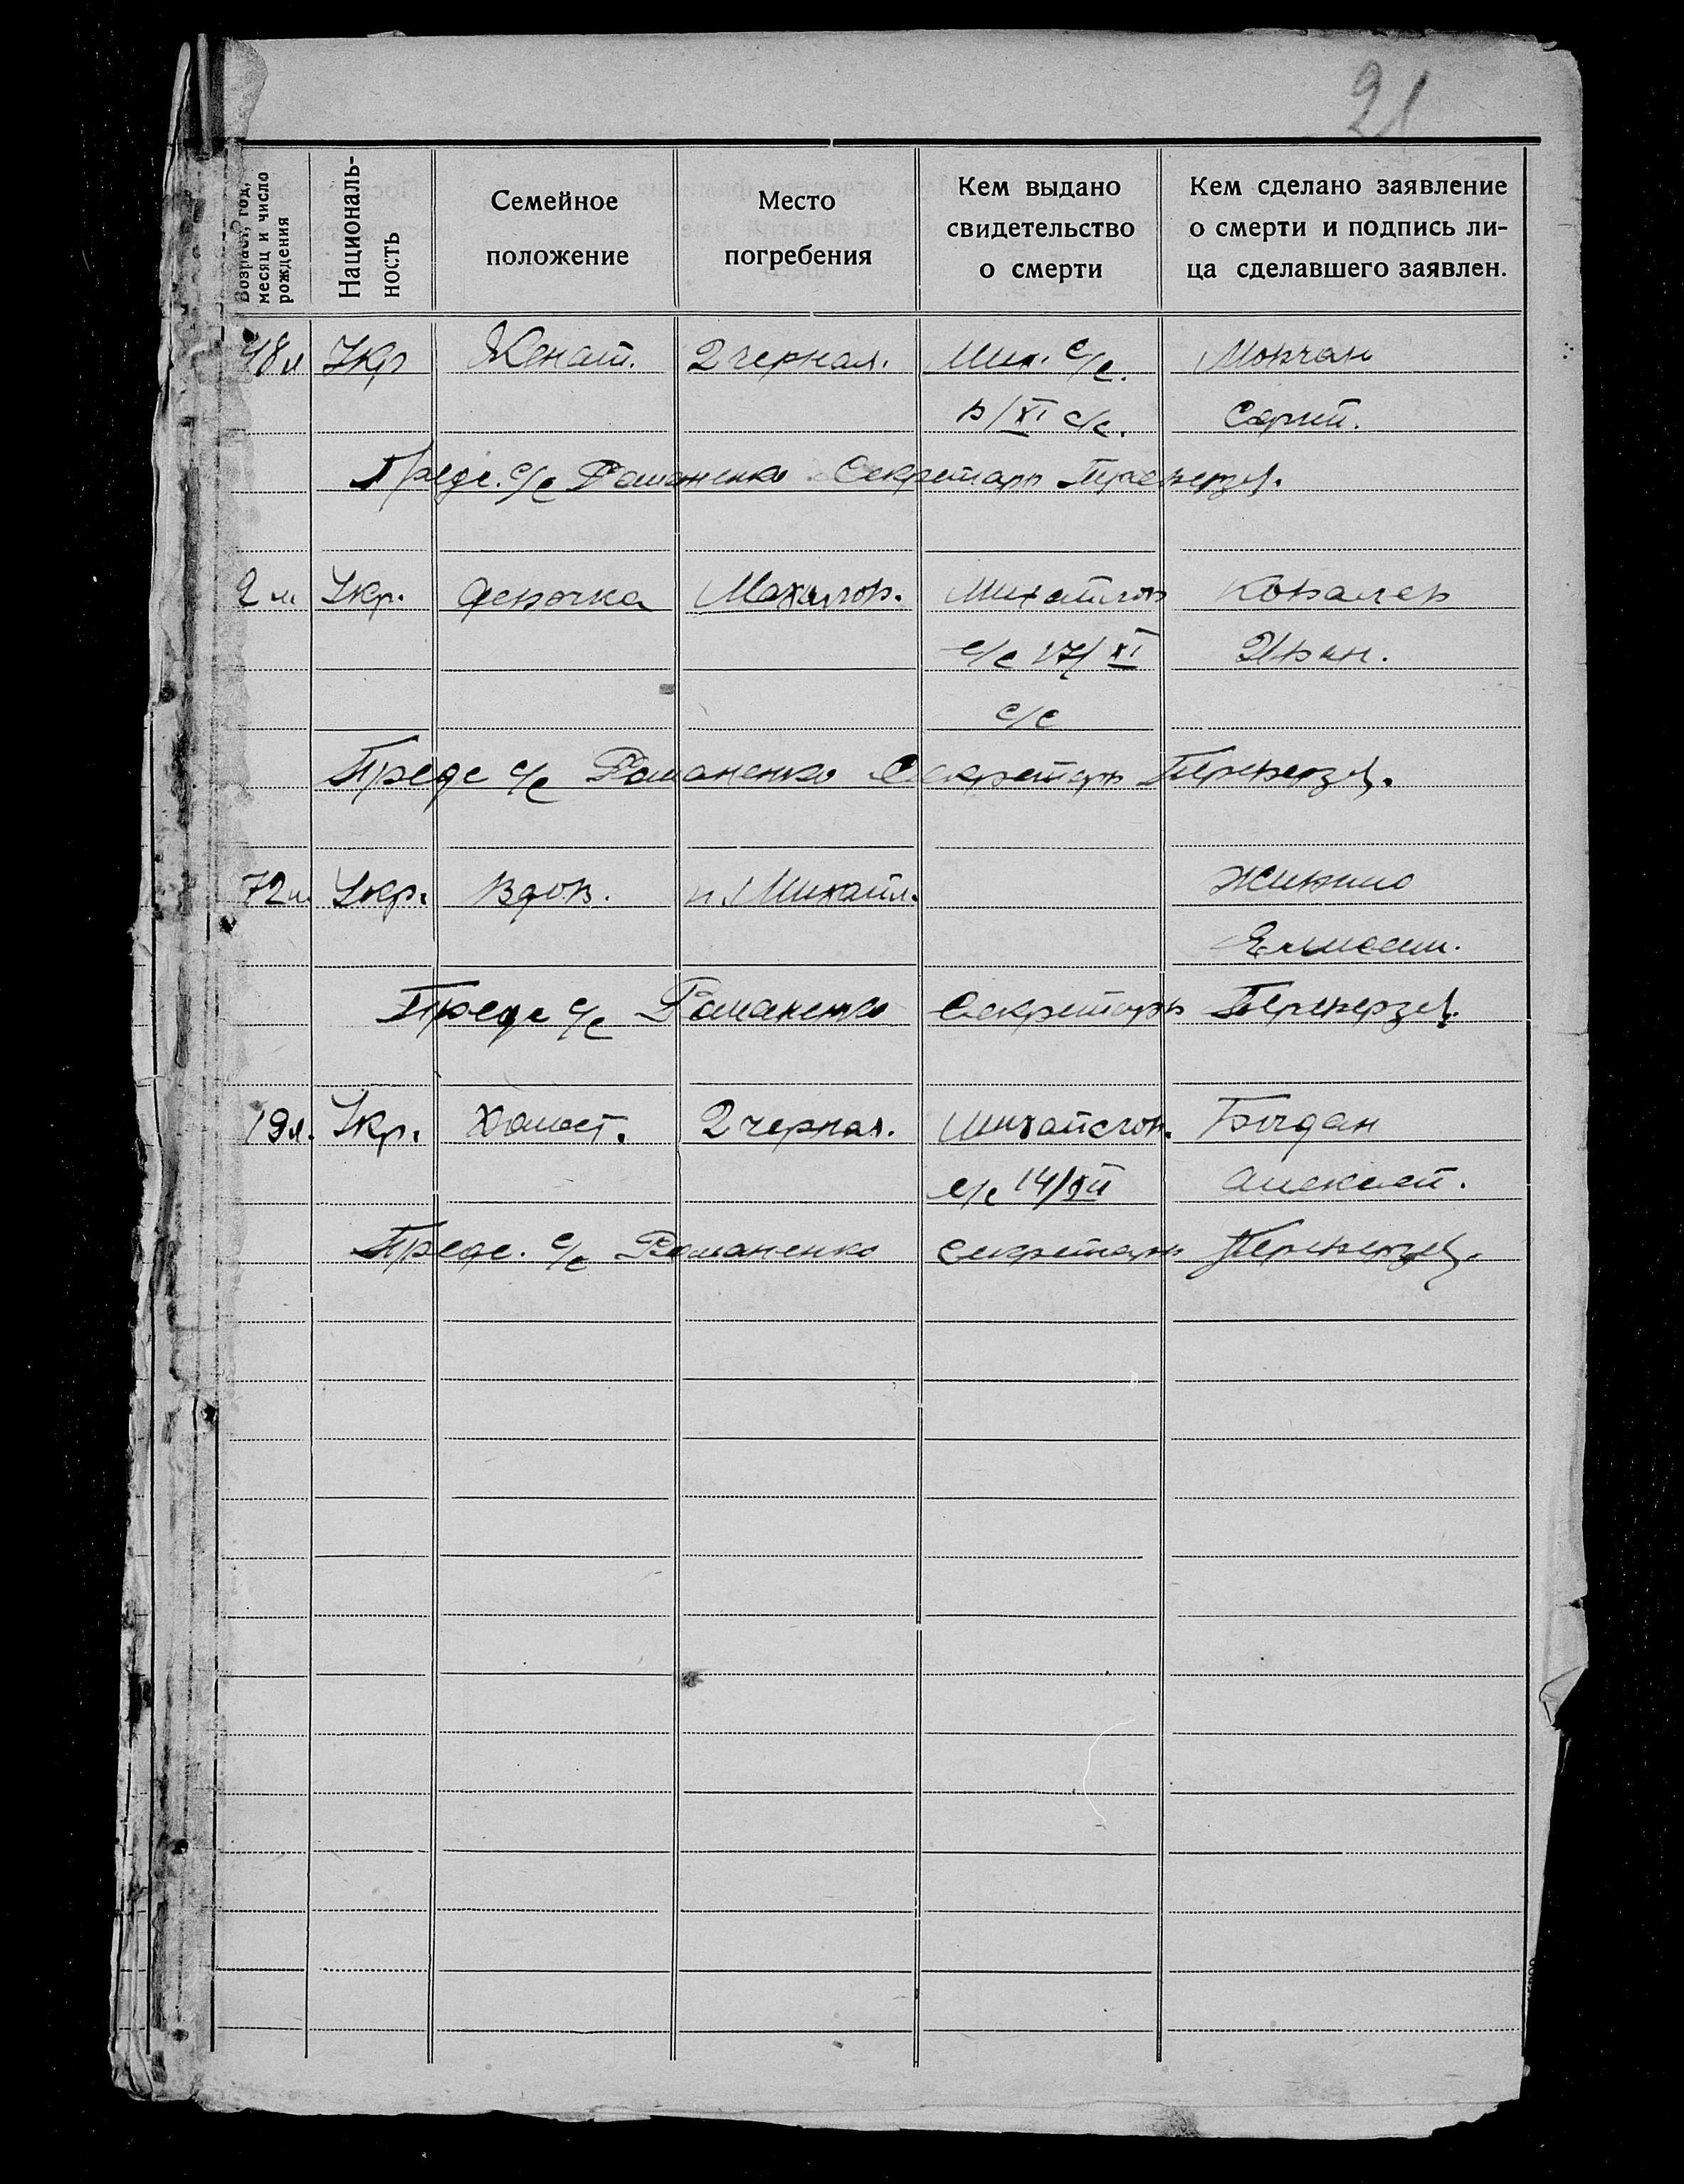 21
Возраст, год, месяц и число рождения
Националь-
ность
Семейное
положение
Место
погребения
Кем выдано
свидетельство
о смерти
Кем сделано заявление
о смерти и подпись ли-
ца сделавшего заявлен.
48 л Укр Женат. 2 черная. Мих. с/с. Мовчан
в/XI с/с. Сергій.
Предс. с/с Романенко Секретарь
2 м Укр. девочка Ковалев
с/с 17/XI Иван.
с/с
Предс с/с Романенко Секретарь
72 л. Укр. вдов. п. Михайл.
Предс с/с Романенко Секретарь
19 л. Укр. Холост. 2 черная. Богдан
с/с 14/XII Алексей.
Предс. с/с Романенко Секретарь